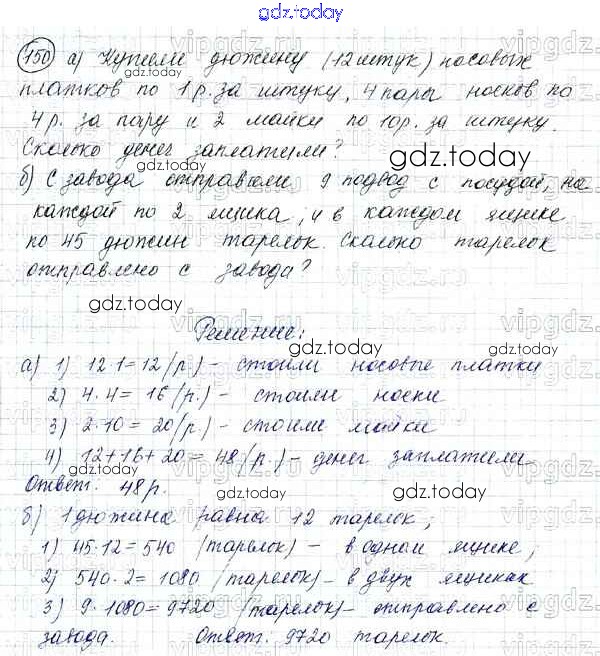 gdz.today
150) а) Купили дюжину (12 штук) носовых
платков по 1 р. за штуку, 4 пары носков по
4 р. за пару и 2 майки по 10р. за штуку.
Сколько денег заплатили?
gdz.today
б) С завода отправили 9 подвод с посудой, на
каждой по 2 ящика, и в каждом ящике
по 45 дюжин тарелок. Сколько тарелок
отправлено с завода?
gdz.today
Решение:
gdz.today
а) 1) 12·1=12 (р.) - стоили носовые платки
2) 4·4=16 (р.) - стоили носки
gdz.today
3) 2·10=20 (р.) - стоили майки
4) 12+16+20=48 (р.) - денег заплатили.
Ответ: 48 р.
gdz.today
gdz.today
б) 1 дюжина равна 12 тарелок;
1) 45·12=540 (тарелок) - в одном ящике;
2) 540·2=1080 (тарелок) - в двух ящиках
3) 9·1080=9720 (тарелок) - отправлено с
завода. Ответ: 9720 тарелок.
gdz.today